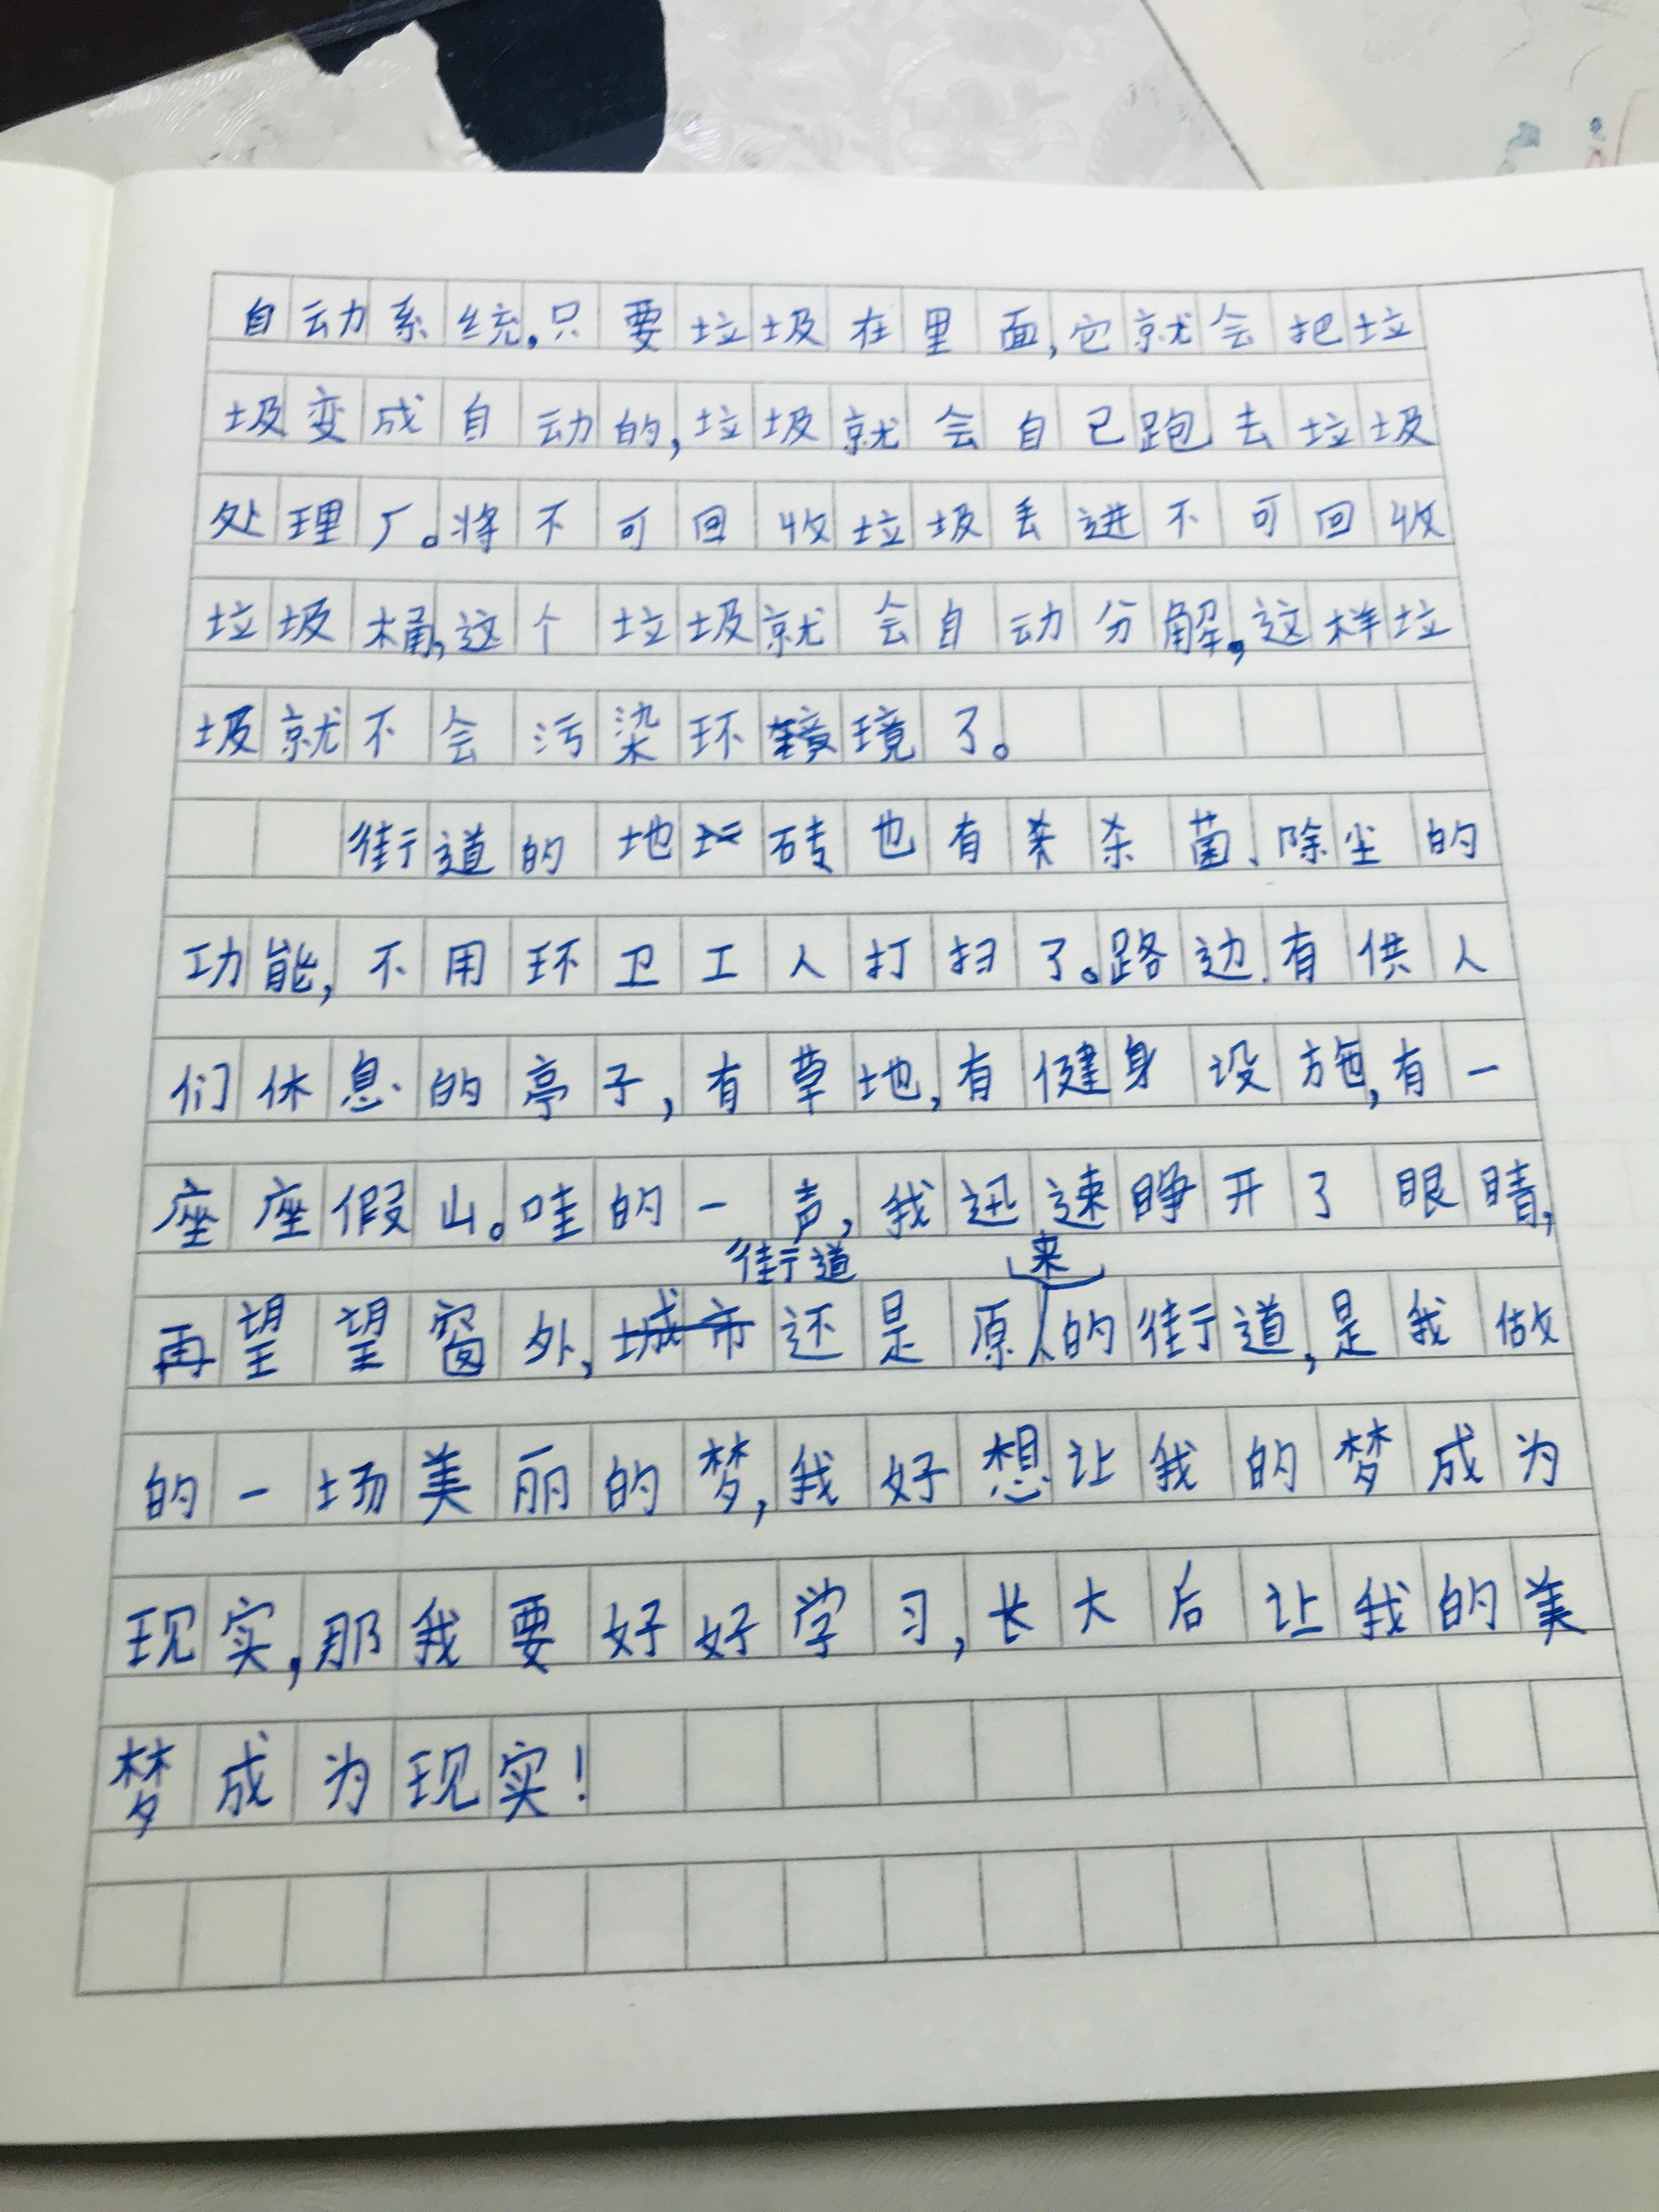 自动系统,只要垃圾在里面,它就会把垃
圾变成自动的,垃圾就会自己跑去垃圾
处理厂。将不可回收垃圾丢进不可回收
垃圾桶,这个垃圾就会自动分解,这样垃
圾就不会污染环境了。
街道的地砖也有杀菌、除尘的
功能,不用环卫工人打扫了。路边有供人
们休息的亭子,有草地,有健身设施,有一
座座假山。哇的一声,我迅速睁开了眼睛,
再望望窗外,街道还是原来的街道,是我做
的一场美丽的梦,我好想让我的梦成为
现实,那我要好好学习,长大后让我的美
梦成为现实!